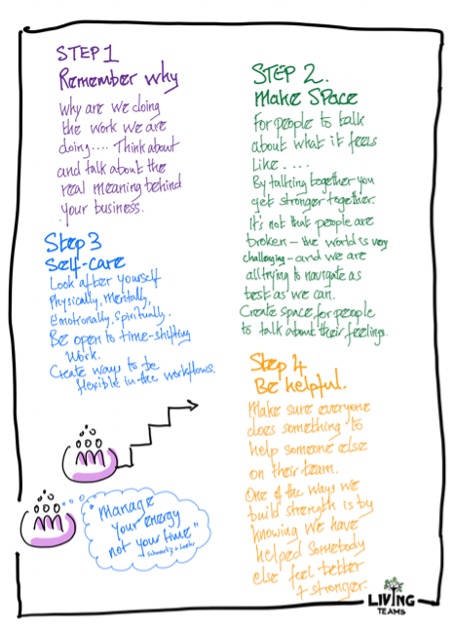 STEP 1
Remember why
Why are we doing
the work we are
doing.... Think about
and talk about the
real meaning behind
your business.
STEP 2.
Make SPace
For people to talk
about what it feels
Like ....
By talking together you
get stronger together.
It's not that people are
broken – the world is very
challenging – and we are
all trying to navigate as
best as we can.
Create space for people
to talk about their feelings.
Step 3
Self-care
Look after yourself
Physically, Mentally,
Emotionally, Spiritually.
Be open to time-shifting
Work.
Create ways to be
flexible in the workflows.
Step 4
Be helpful.
Make sure everyone
does something to
help someone else
on their team.
One of the ways we
build strength is by
knowing we have
helped somebody
else feel better
+ stronger.
"Manage
your energy
not your time"
LIVING
TEAMS